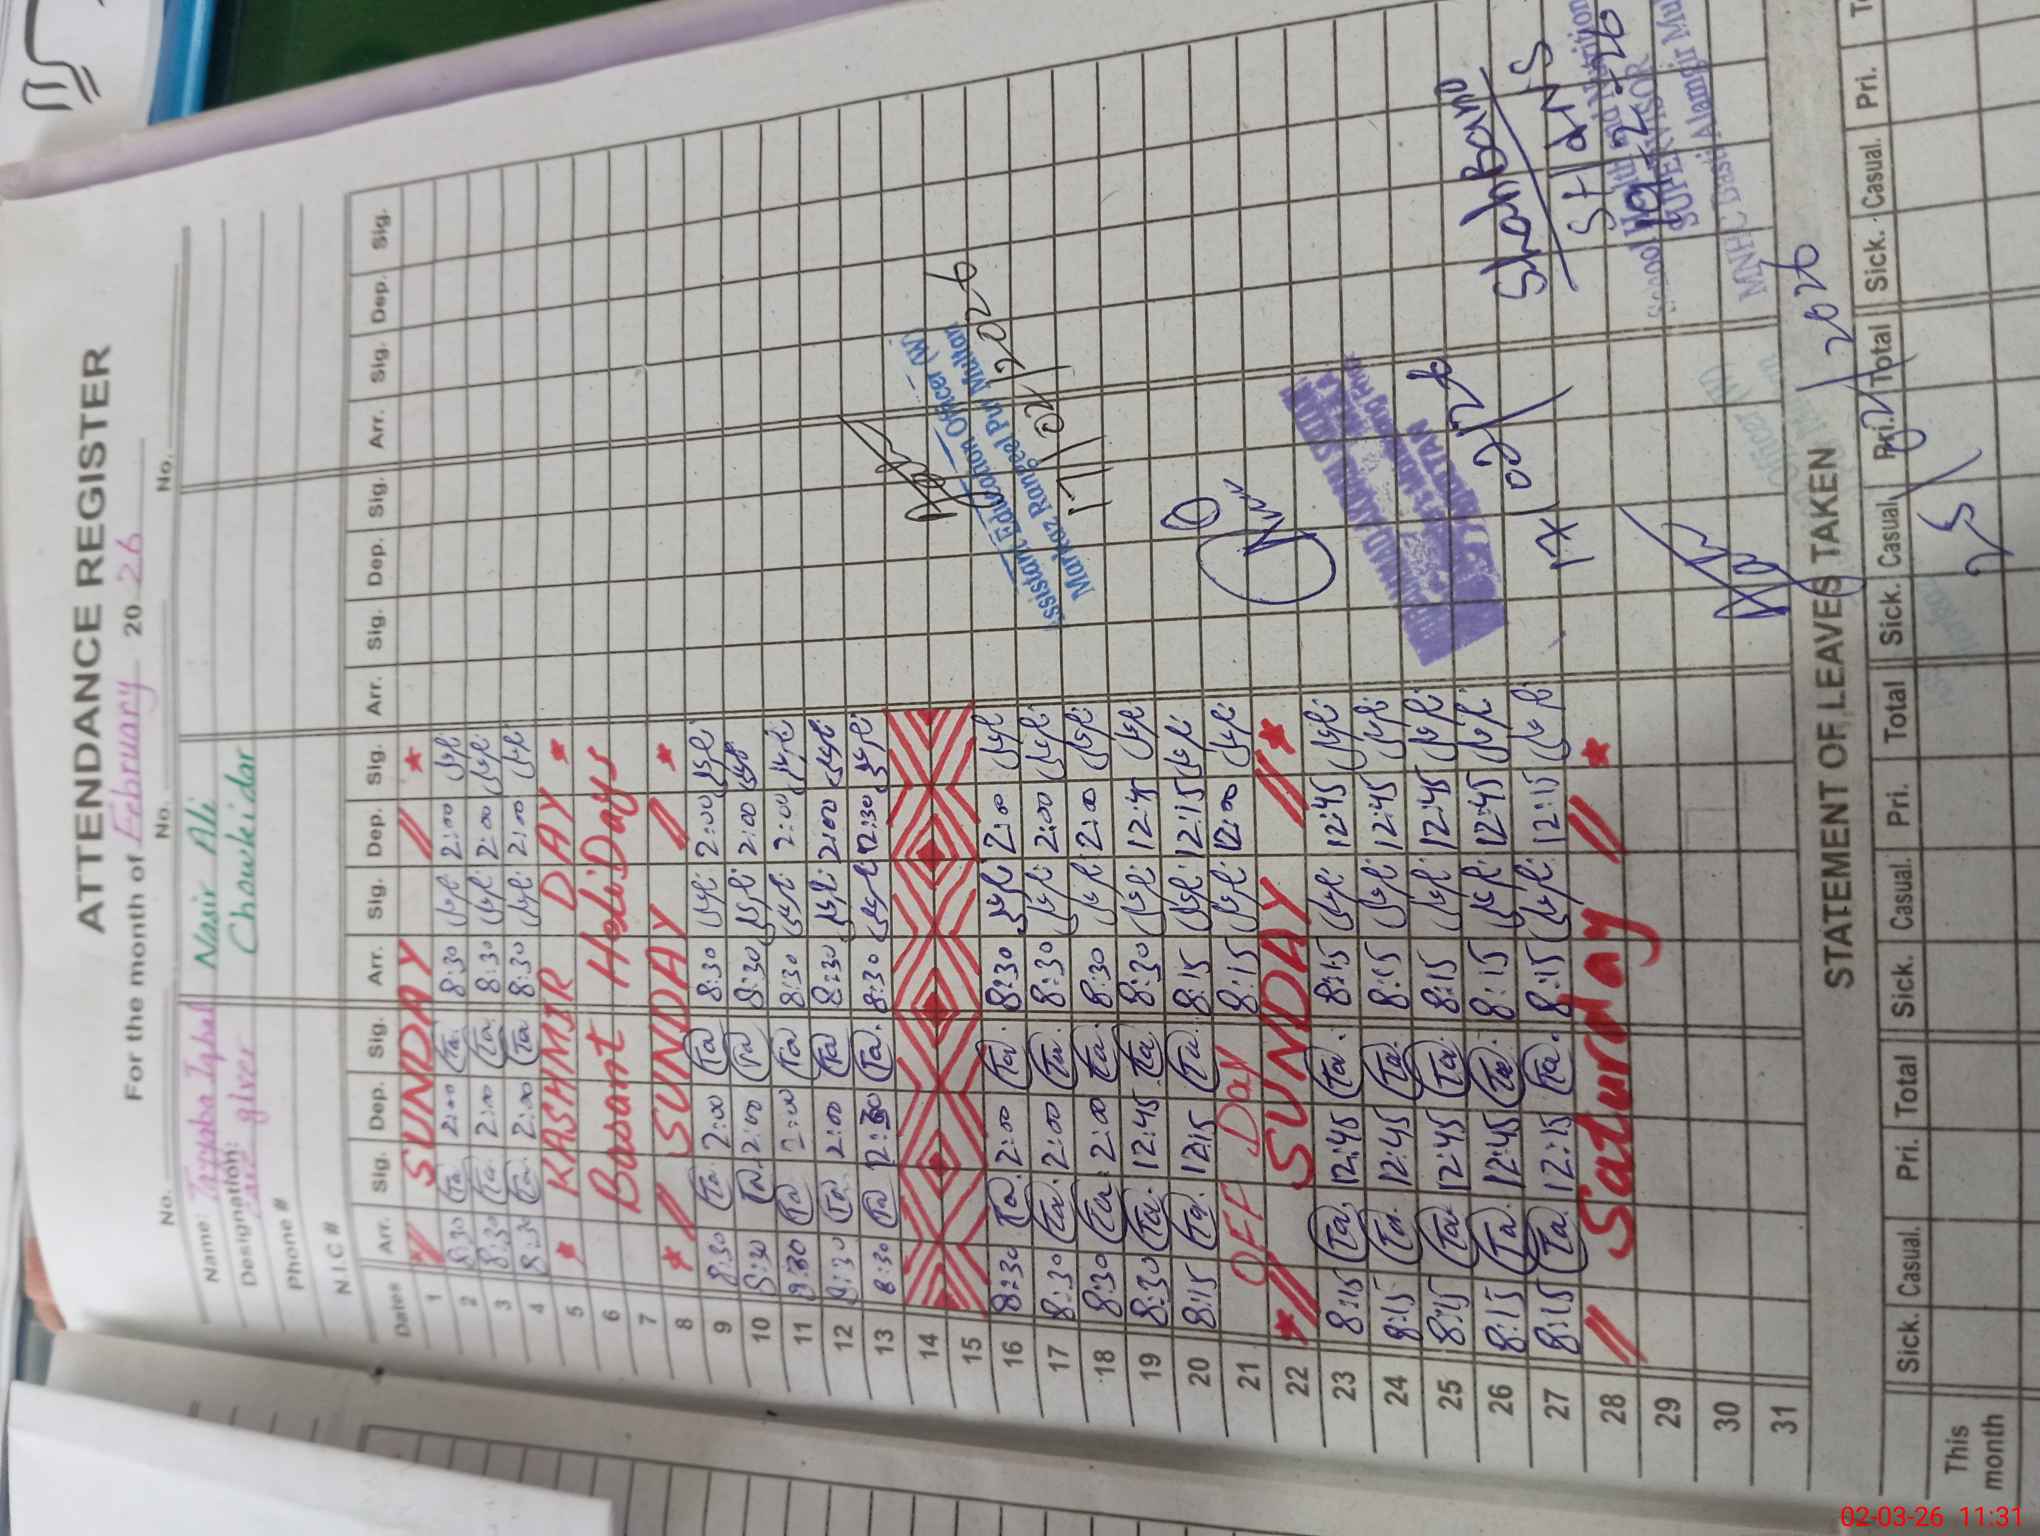 ATTENDANCE REGISTER
For the month of February 2026
No. No. No.
Name: Tayyaba Iqbal Nasir Ali
Designation: Care giver Chowkidar
Phone #
N.I.C #
Dates Arr. Sig. Dep. Sig. Arr. Sig. Dep. Sig. Arr. Sig. Dep. Sig. Arr. Sig. Dep. Sig.
1 SUNDAY
2 8:30 Ta. 2:00 Ta. 8:30 2:00
3 8:30 Ta. 2:00 Ta. 8:30 2:00
4 8:30 Ta 2:00 Ta 8:30 2:00
5 KASHMIR DAY
6 Basant HoliDays
7
8 SUNDAY
9 8:30 Ta. 2:00 Ta 8:30 2:00
10 8:30 Ta. 2:00 Ta 8:30 2:00
11 8:30 Ta 2:00 Ta 8:30 2:00
12 8:30 Ta 2:00 Ta 8:30 2:00
13 8:30 Ta 12:30 Ta. 8:30 12:30
14
15
16 8:30 Ta. 2:00 Ta. 8:30 2:00
17 8:30 Ta. 2:00 Ta. 8:30 2:00
18 8:30 Ta 2:00 Ta. 8:30 2:00
19 8:30 Ta. 12:45 Ta 8:30 12:45
20 8:15 Ta. 12:15 Ta. 8:15 12:15
21 OFF Day 8:15 12:00
22 SUNDAY
23 8:15 Ta. 12:45 Ta. 8:15 12:45
24 8:15 Ta. 12:45 Ta. 8:15 12:45
25 8:15 Ta. 12:45 Ta. 8:15 12:45
26 8:15 Ta. 12:45 Ta. 8:15 12:45
27 8:15 Ta. 12:15 Ta. 8:15 12:15
28 Saturday
29
30
31
Assistant Education Officer (W)
Markaz Rangeel Pur Multan
17/02/2026
17/02/26
Shah Bano
SH&NS
19-2-26
School Health and Nutrition
SUPERVISOR
MNHC Basti Alamgir
25/2/2026
STATEMENT OF LEAVES TAKEN
Sick. Casual. Pri. Total Sick. Casual. Pri. Total Sick. Casual. Pri. Total Sick. Casual. Pri.
This month
02-03-26 11:31